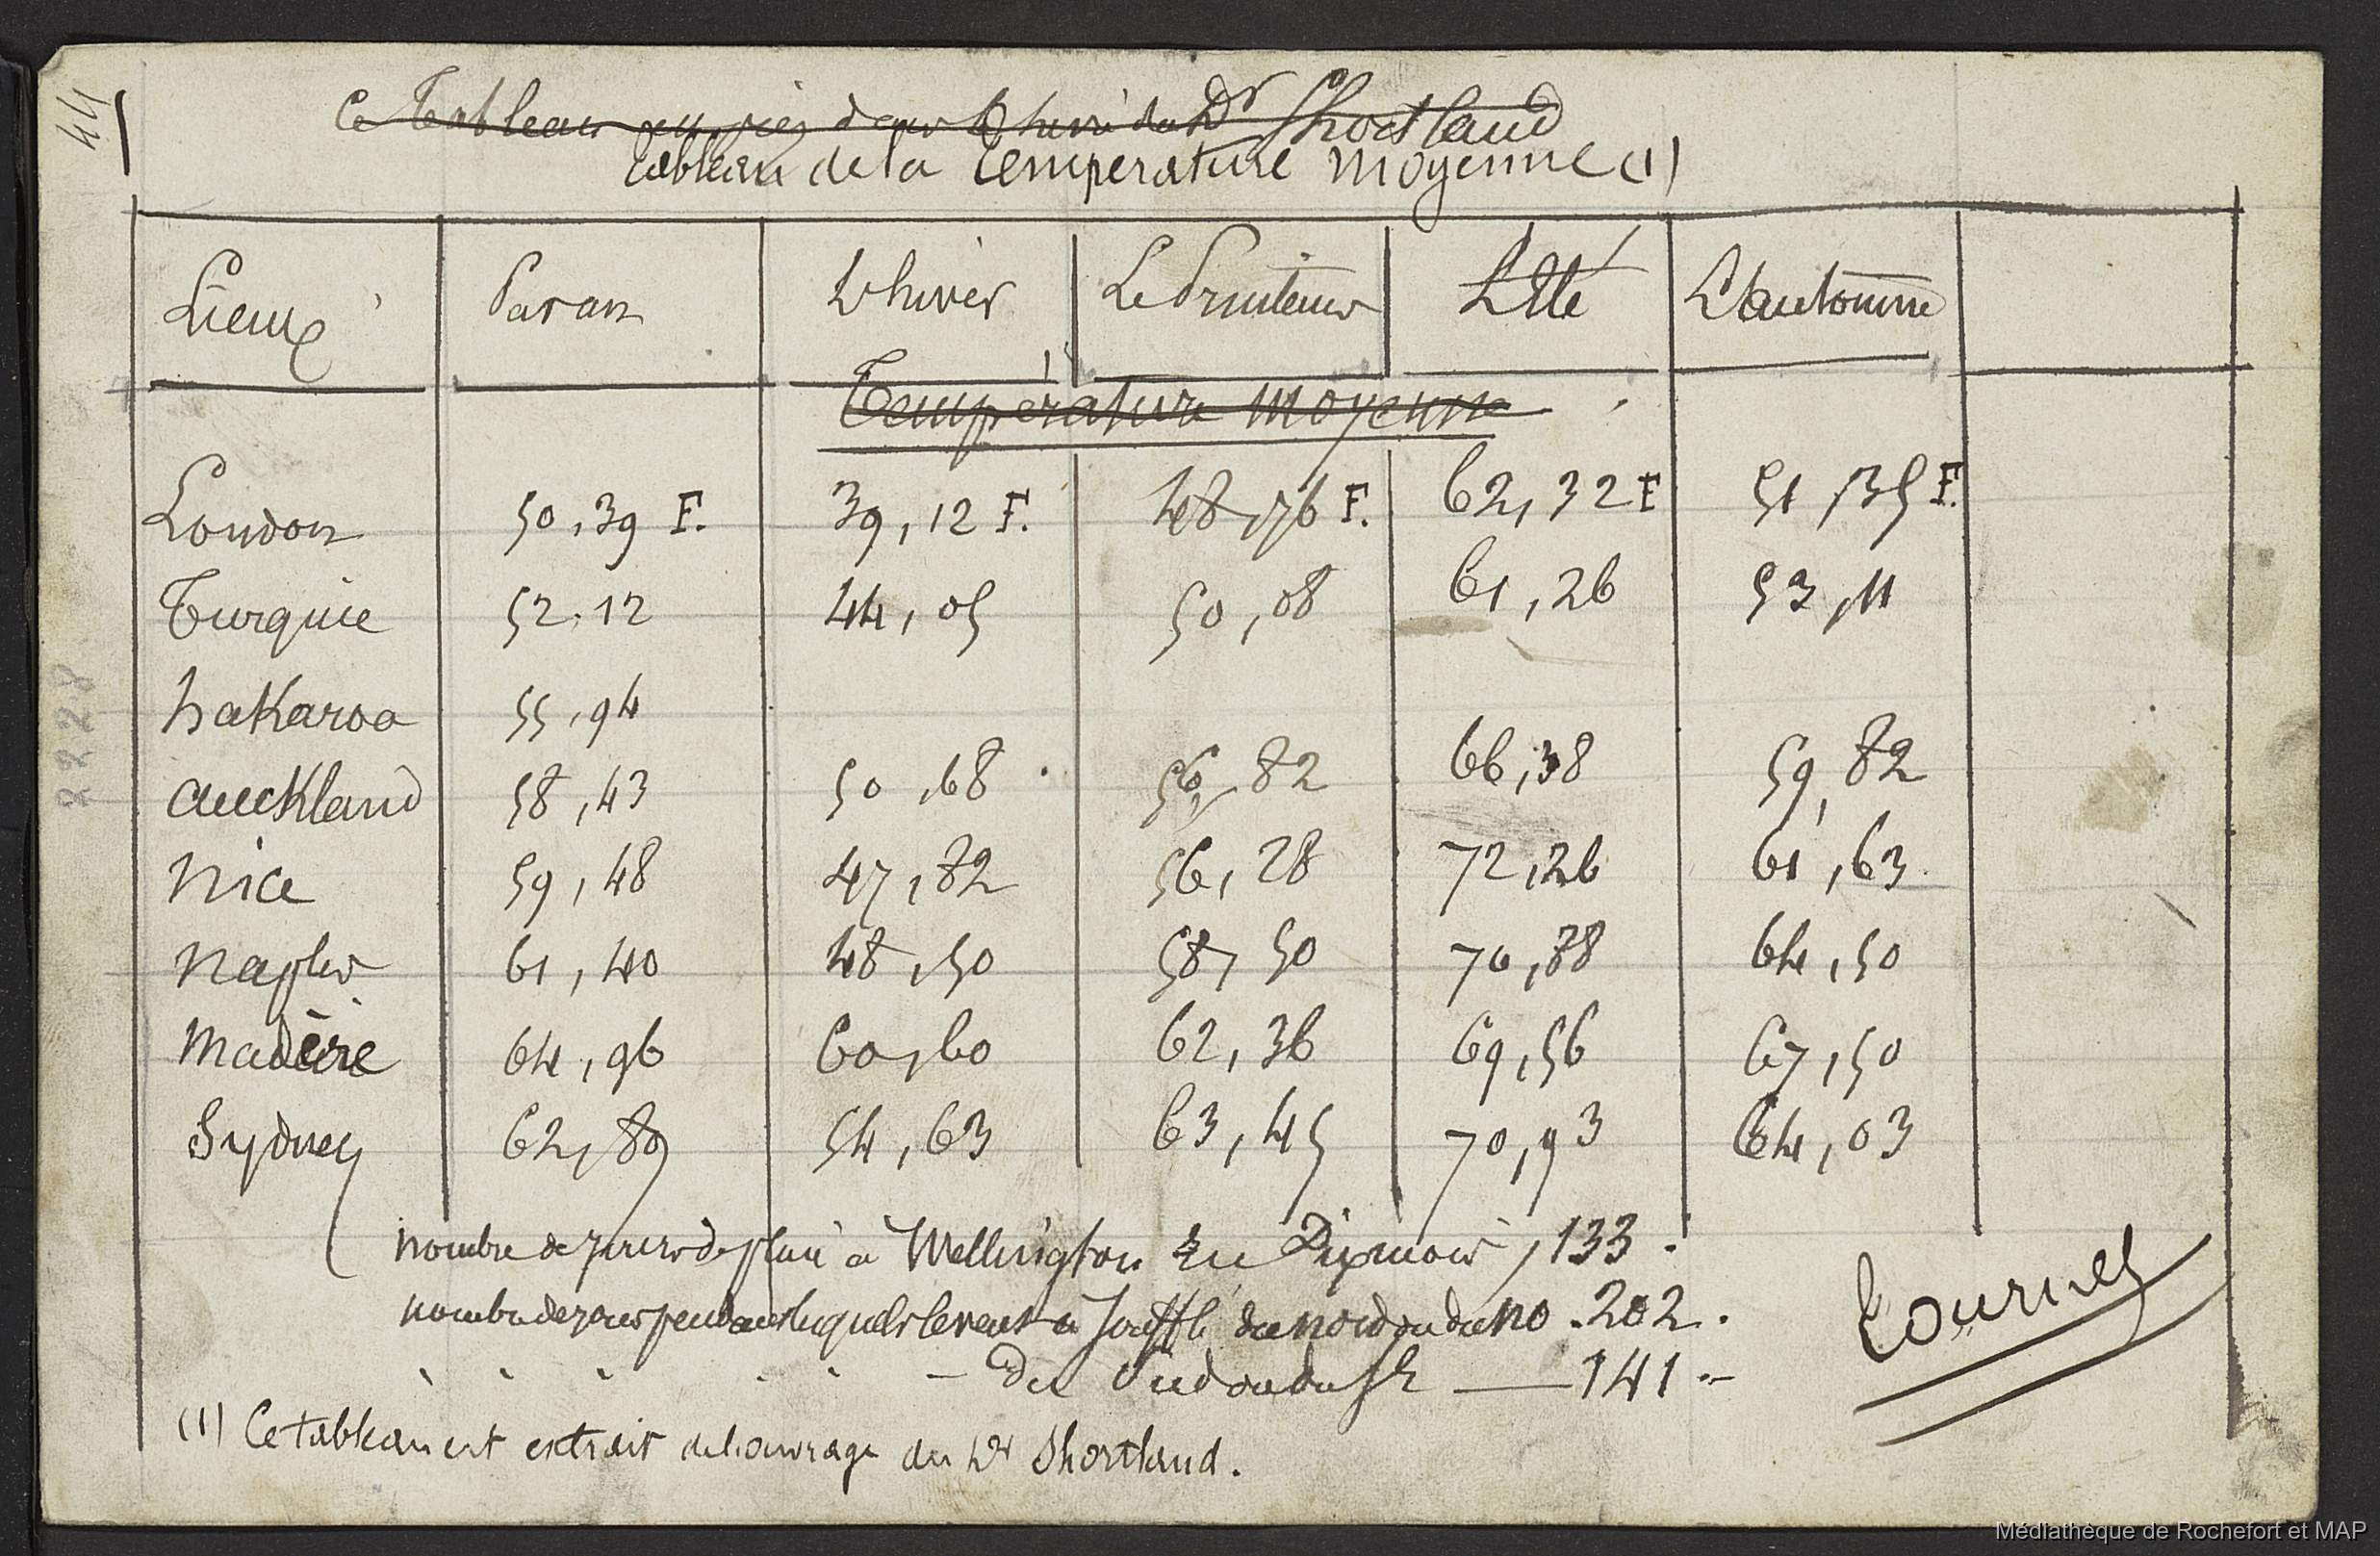 44
Ce Tableau dans le livre du Dr Shortland
Tableau de la Température moyenne (1)
Lieux Par an L'hiver Le Printemps L'Eté L'automne
Température moyenne
London 50,39 F. 39,12 F. 48,76 F. 62,32 F 51,35 F.
Turquie 52,12 44,05 50,08 61,26 53,11
hakaroa 55,94
auckland 58,43 50,68 56, 82 66,38 59,82
Nice 59,48 47,82 56,28 72,26 61,63
Naples 61,40 48,50 58,50 70,88 64,50
Madère 64,96 60,60 62,36 69,56 67,50
Sydney 62,89 54,63 63,45 70,93 64,03
nombre de jours de pluie à Wellington 133.
nombre de jours pendant lesquels le vent a soufflé du nord ou du NO. 202.
- du Sud ou du SE — 141 -
Tournei
(1) Ce tableau est extrait de l'ouvrage du Dr Shortland.
8228
Médiathèque de Rochefort et MAP